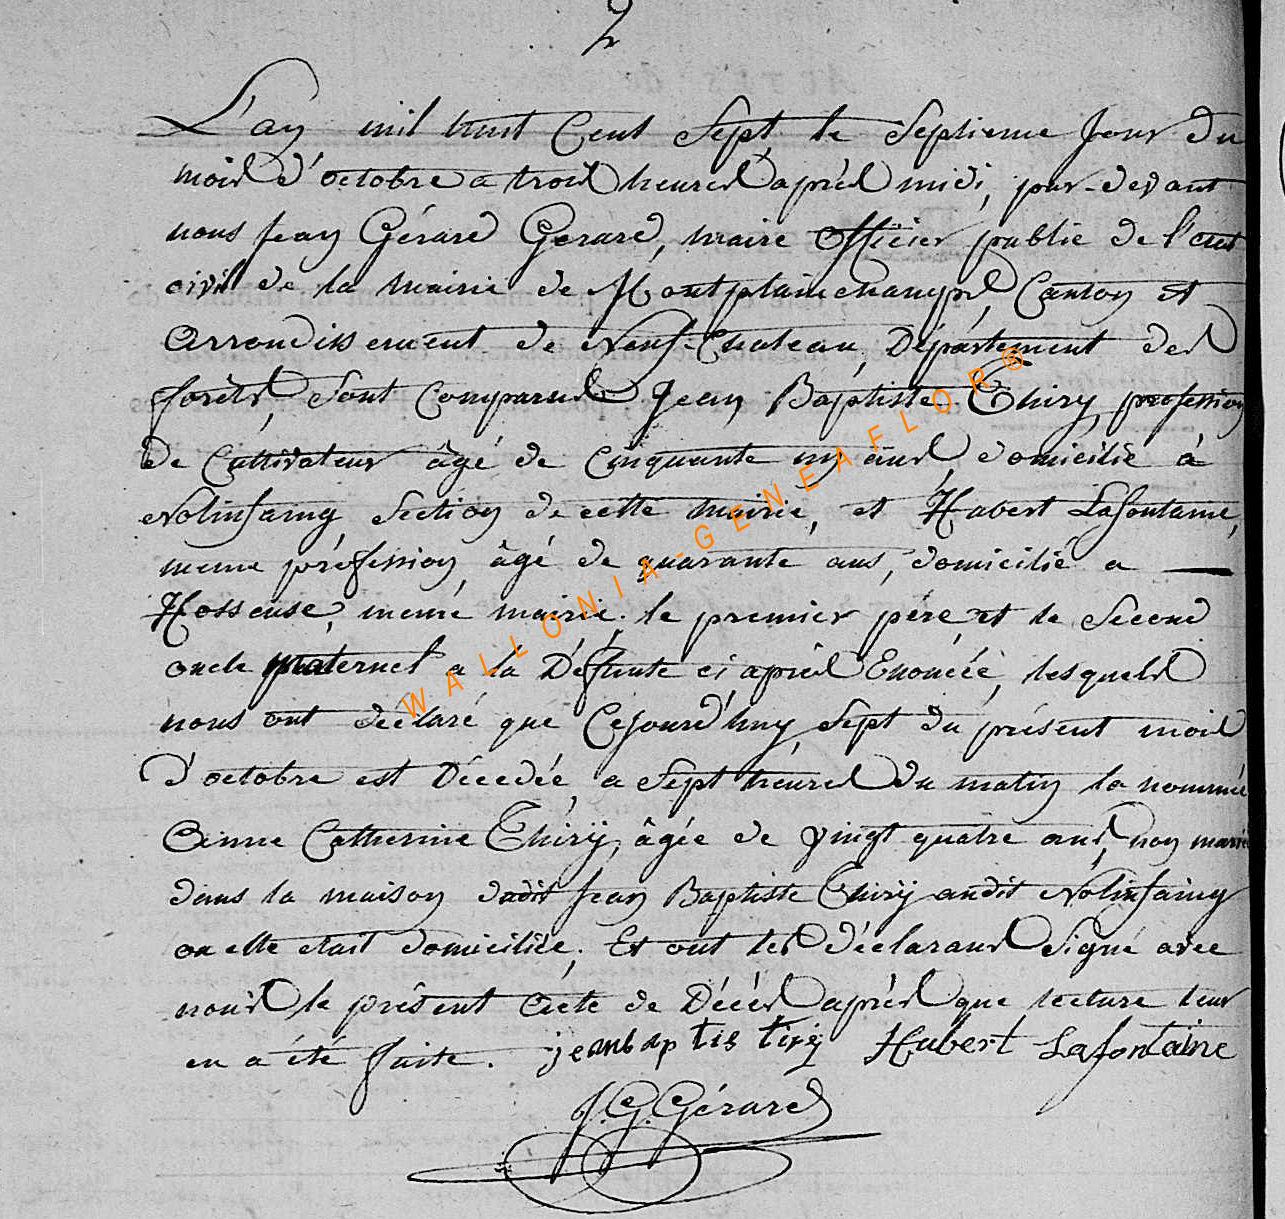 2
L'an mil huit Cent Sept, le Septieme Jour du
mois d'octobre a trois heures après midi, par-devant
nous Jean Gérard Gerard, maire Officier public de l'etat
civil de la Mairie de Montplainchamps, Canton et
Arrondissement de Neuf-Chateau, Département des
forêts, Sont Comparus Jean Baptiste Thiry, profession
de Cultivateur âgé de Cinquante un ans, domicilié à
Nolinfaing, Section de cette Mairie, et Hubert Lafontaine,
meme profession, âgé de quarante ans, domicilié a
Hosseuse, meme mairie. le premier père et le Second
oncle maternel a la Défunte ci après Enoncée, lesquels
nous ont déclaré que Cejourd'huy Sept du présent mois
d'octobre est Décedée, a Sept heures du matin la nommée
Anne Catherine Thiry, âgée de vingt quatre ans, non mariée
dans la maison dudit Jean Baptiste Thiry audit Nolinfaing
ou elle etait domiciliée; Et ont les déclarans Signé avec
nous le présent Acte de Décès après que lecture leur
en a été faite. jeanbaptis tiry Hubert Lafontaine
J.G.Gérard
WALLONIA-GENEAFLOR®